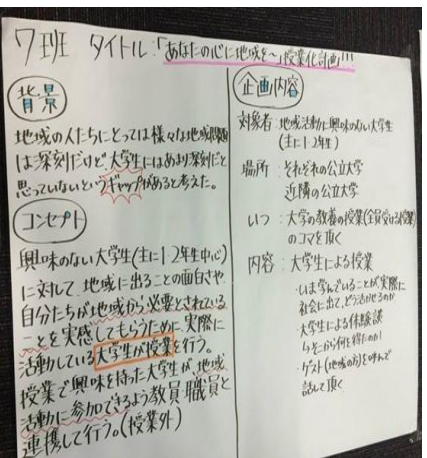 7班 タイトル:「あなたの心に地域を～」授業化計画!!!
背景
地域の人たちにとっては様々な地域問題
は深刻だけど、大学生にはあまり深刻だと
思っていないというギャップがあると考えた。
コンセプト
興味のない大学生(主に1・2年生中心)
に対して、地域に出ることの面白さや、
自分たちが地域から必要とされている
ことを実感してもらうために、実際に
活動している大学生が授業を行う。
授業で興味を持った大学生が、地域
活動に参加できるよう教員、職員と
連携して行う。(授業外)
企画内容
対象者:地域活動に興味のない大学生
(主に1・2年生)
場所:それぞれの公立大学
近隣の公立大学
いつ:大学の教養の授業(全員受ける授業)
のコマを頂く
内容:大学生による授業
・いま学んでいることが実際に
社会に出て、どう活かせるのか
・大学生による体験談
らそこから何を得たのか!
・ゲスト(地域の方)を呼んで
話して頂く